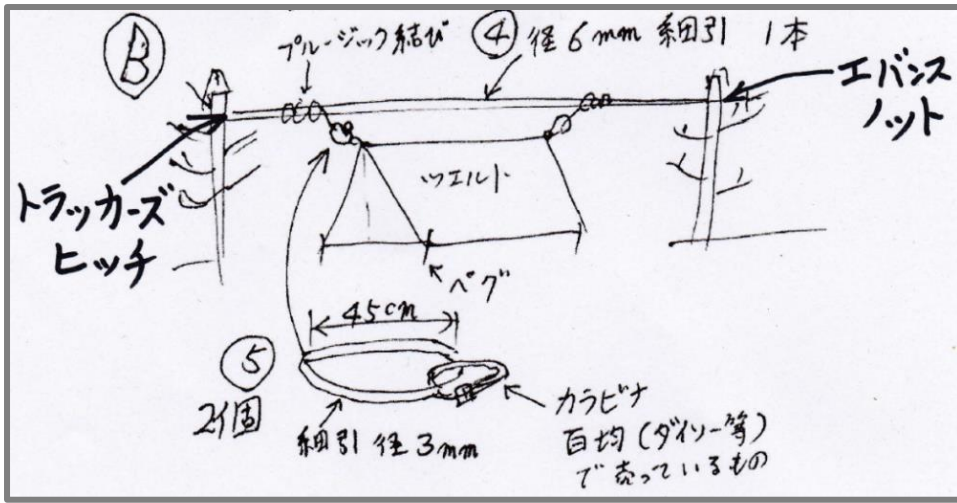 B
プルージック結び ④ 径6mm 細引 1本
エバンス
ノット
トラッカーズ
ヒッチ
ツエルト
ペグ
45cm
⑤
2個
細引 径3mm
カラビナ
百均(ダイソー等)
で売っているもの